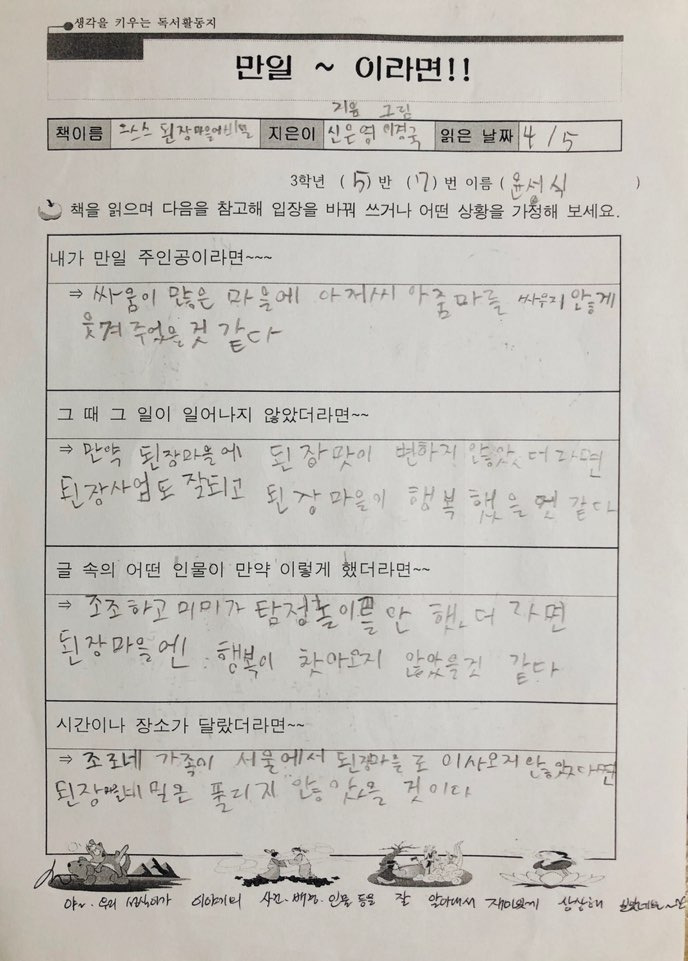 생각을 키우는 독서활동지
만일 ~ 이라면!!
지음 그림
책이름 으스스 된장마을에비밀 지은이 신은영 이경국 읽은 날짜 4/5
3학년 (5)반 (7)번 이름 (윤성식)
책을 읽으며 다음을 참고해 입장을 바꿔 쓰거나 어떤 상황을 가정해 보세요.
내가 만일 주인공이라면~~~
⇒ 싸움이 많은 마을에 아저씨 아줌마를 싸우지 안케
웃겨주었을것 같다
그 때 그 일이 일어나지 않았더라면~~
⇒ 만약 된장마을에 된장맛이 변하지 않았더라면
된장사업도 잘되고 된장마을이 행복했을 것 같다
글 속의 어떤 인물이 만약 이렇게 했더라면~~
⇒ 조조하고 미미가 탐정놀이를 안 했더라면
된장마을엔 행복이 찾아오지 않았을것 같다
시간이나 장소가 달랐더라면~~
⇒ 조로네 가족이 서울에서 된장마을로 이사오지 않았다면
된장마을비밀은 풀리지 않았을 것이다
야~ 우리 성식이가 이야기의 사건·배경·인물 등을 잘 알아내서 재미있게 상상해